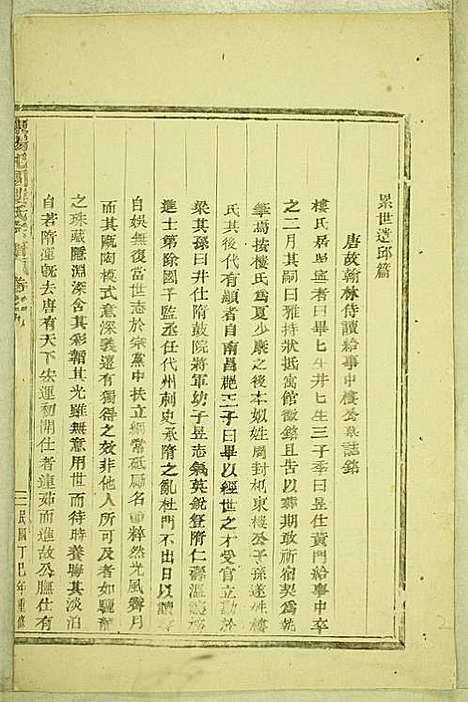 累世迯邱篇
唐故翰林侍讀給事中樓公墓誌銘
樓氏居烏寧者曰畢七生井七生三子季曰昱仕黃門給事中卒
之二月其嗣曰雅持狀抵寓館徵銘且告以葬期敢所宿契為執
筆焉按樓氏為夏少康之後本姒姓周封杞東樓公子孫遂姓樓
氏其後代有顯者自南昌 二子曰畢以經世之才受官立勳於
梁其孫曰井仕隋鼓院將軍幼子昱志氣英銳登隋仁壽溫
進士第除國子監丞任代州刺史承隋之亂杜門不出日以讀
自娛無復當世志於宗黨中扶立綱常砥礪名 粹然光風霽月
而其甄陶模式意深義遠有獨得之效非他人所可及者如驪龍
之珠藏隱淵深含其彩韜其光雖無意用世而待時養晦其淡泊
自若隋運旣去唐有天下宏運初開仕者連茹而進故公膺仕有
民國丁巳年重修